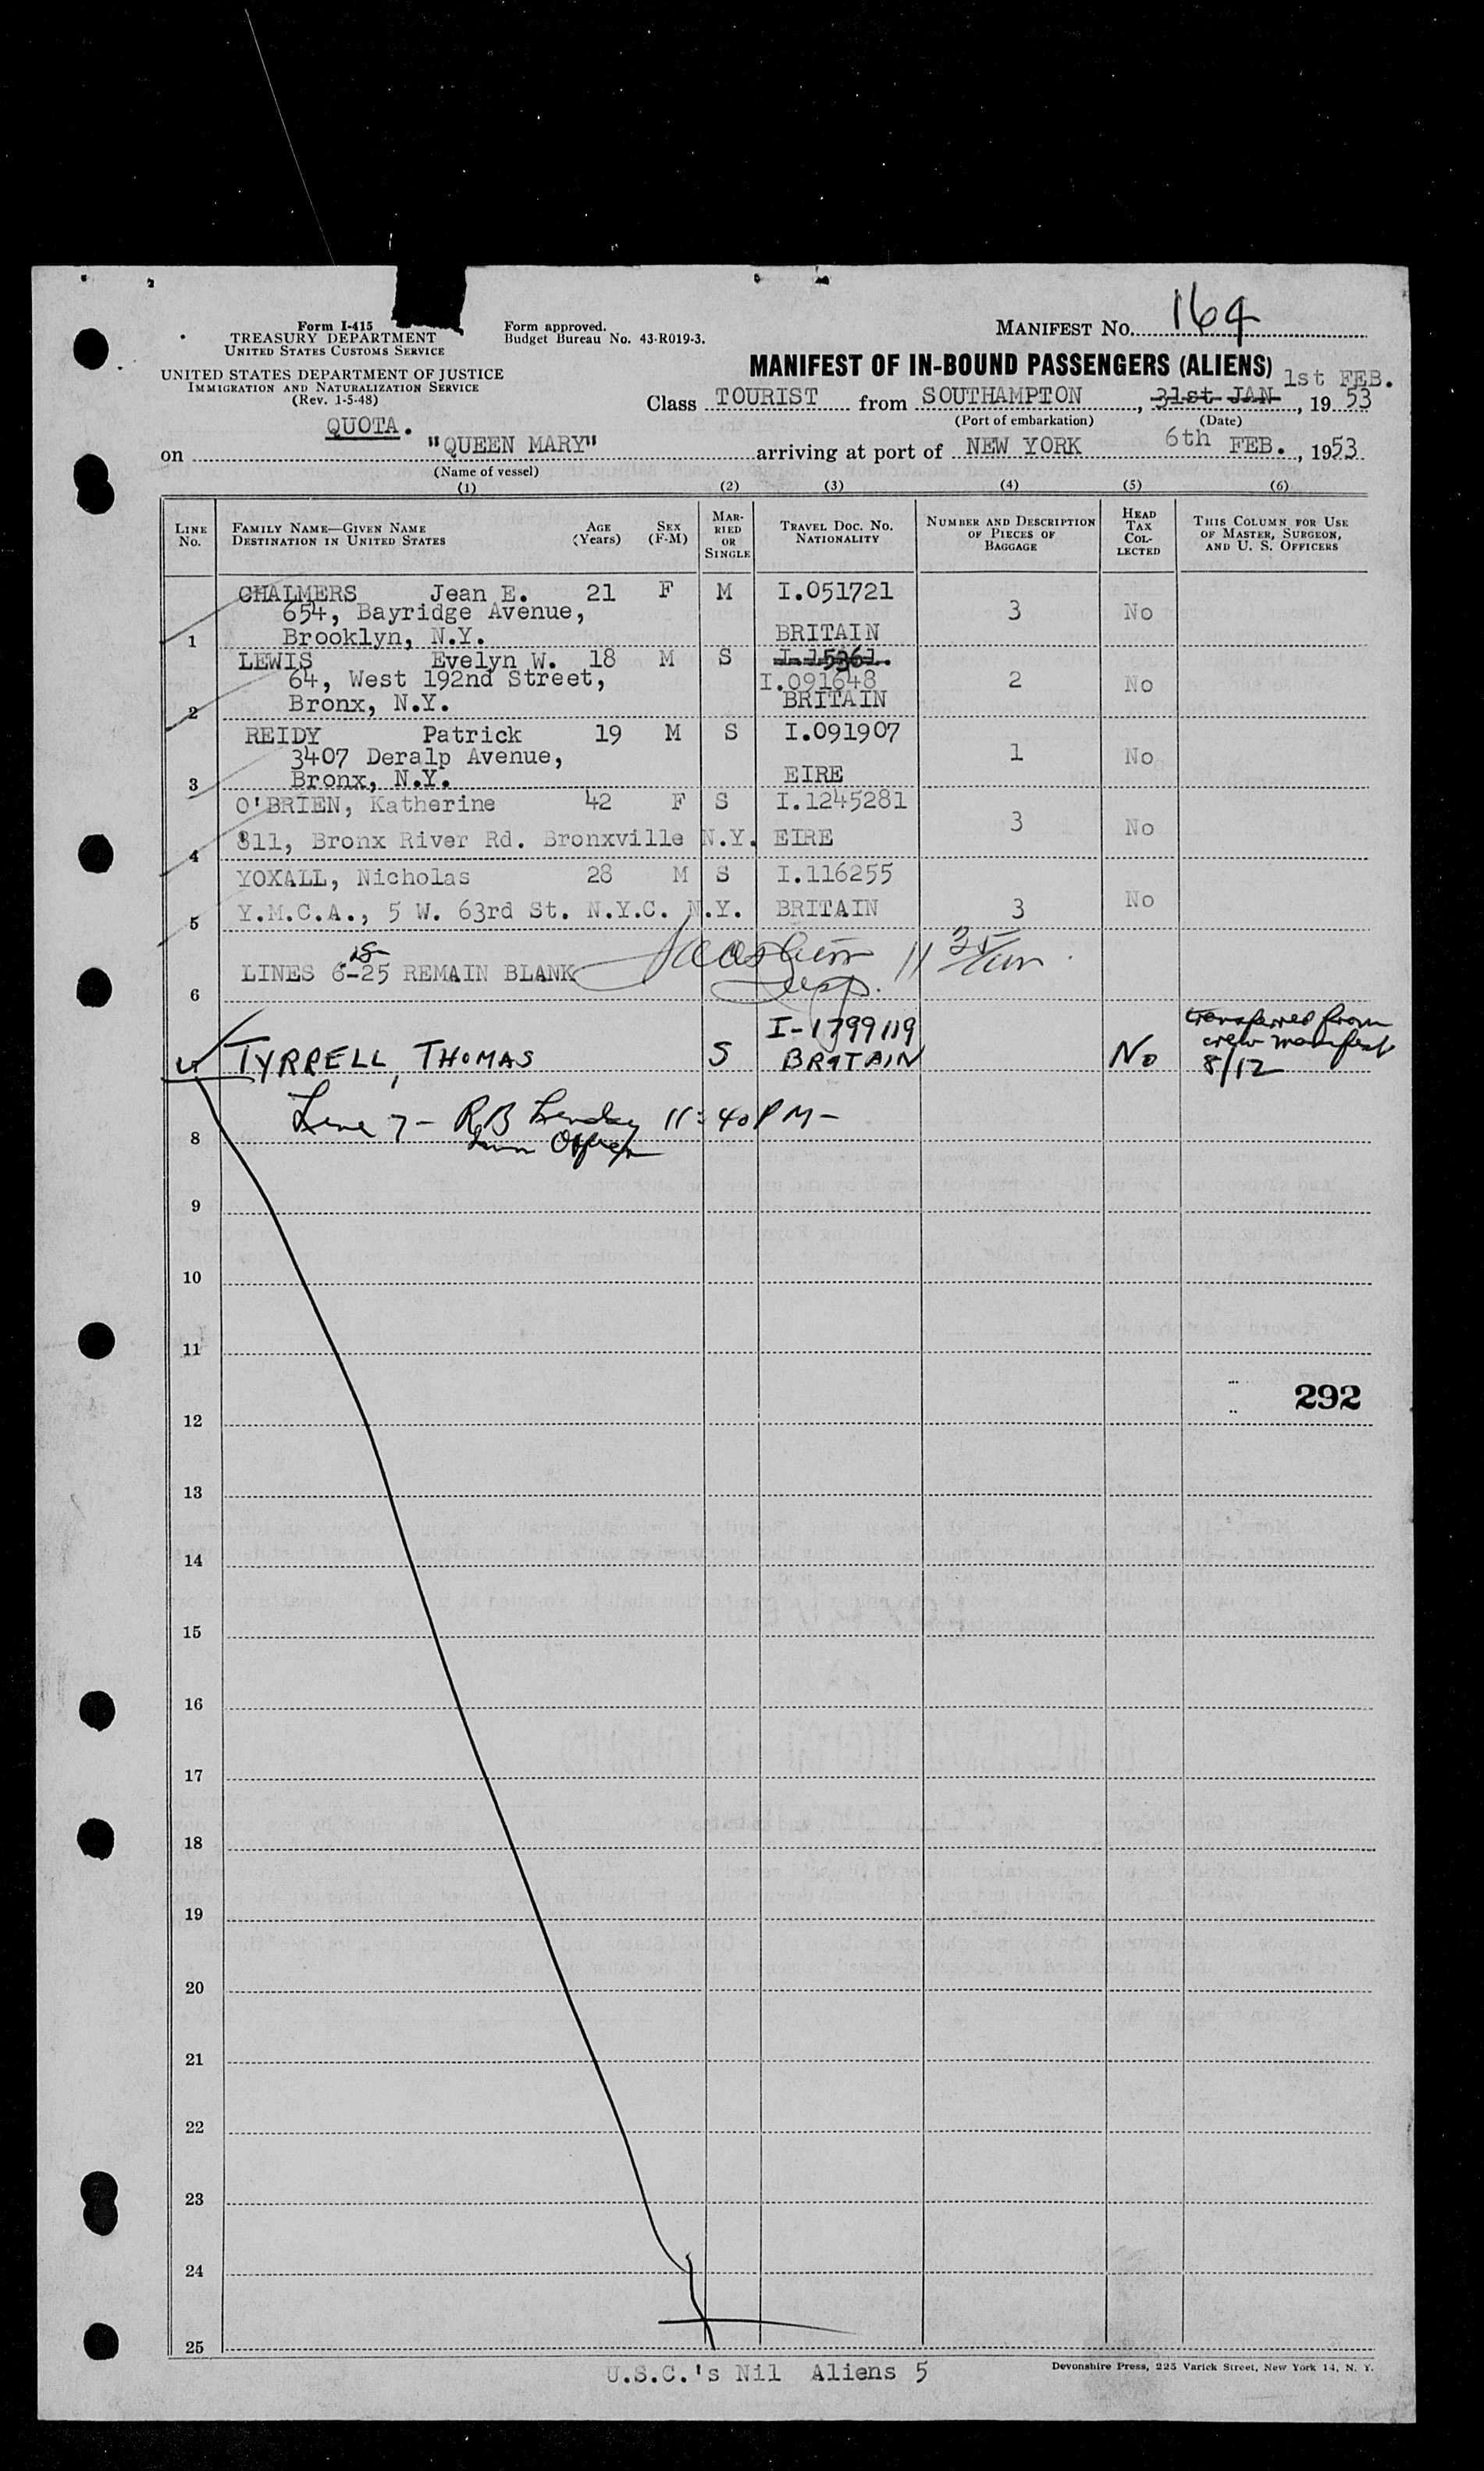 Form I-415
TREASURY DEPARTMENT
UNITED STATES CUSTOMS SERVICE
UNITED STATES DEPARTMENT OF JUSTICE
IMMIGRATION AND NATURALIZATION SERVICE
(Rev. 1-5-48)
Form approved.
Budget Bureau No. 43-R019-3.
MANIFEST No. 164
MANIFEST OF IN-BOUND PASSENGERS (ALIENS)
1st FEB.
Class TOURIST from SOUTHAMPTON, 31st JAN, 19 53
(Port of embarkation) (Date)
QUOTA.
on "QUEEN MARY" arriving at port of NEW YORK 6th FEB., 1953
(Name of vessel)
(1) (2) (3) (4) (5) (6)
LINE No.
FAMILY NAME—GIVEN NAME
DESTINATION IN UNITED STATES
AGE (Years)
SEX (F-M)
MARRIED OR SINGLE
TRAVEL DOC. No.
NATIONALITY
NUMBER AND DESCRIPTION OF PIECES OF BAGGAGE
HEAD TAX COLLECTED
THIS COLUMN FOR USE OF MASTER, SURGEON, AND U. S. OFFICERS
CHALMERS Jean E. 21 F M I.051721
654, Bayridge Avenue, 3 No
1 Brooklyn, N.Y. BRITAIN
LEWIS Evelyn W. 18 M S I.15361.
64, West 192nd Street, I.091648 2 No
2 Bronx, N.Y. BRITAIN
REIDY Patrick 19 M S I.091907
3407 Deralp Avenue, 1 No
3 Bronx, N.Y. EIRE
O'BRIEN, Katherine 42 F S I.1245281
4 811, Bronx River Rd. Bronxville N.Y. EIRE 3 No
YOXALL, Nicholas 28 M S I.116255
5 Y.M.C.A., 5 W. 63rd St. N.Y.C. N.Y. BRITAIN 3 No
LINES 6-25 REMAIN BLANK
Insp. 11 35
6
I-1799119
TYRRELL, THOMAS S BRITAIN No transferred from
crew manifest
8/12
Line 7 - RB 11:40 PM -
Imm Officer
8
9
10
11
292
12
13
14
15
16
17
18
19
20
21
22
23
24
25
U.S.C.'s Nil Aliens 5
Devonshire Press, 225 Varick Street, New York 14, N. Y.